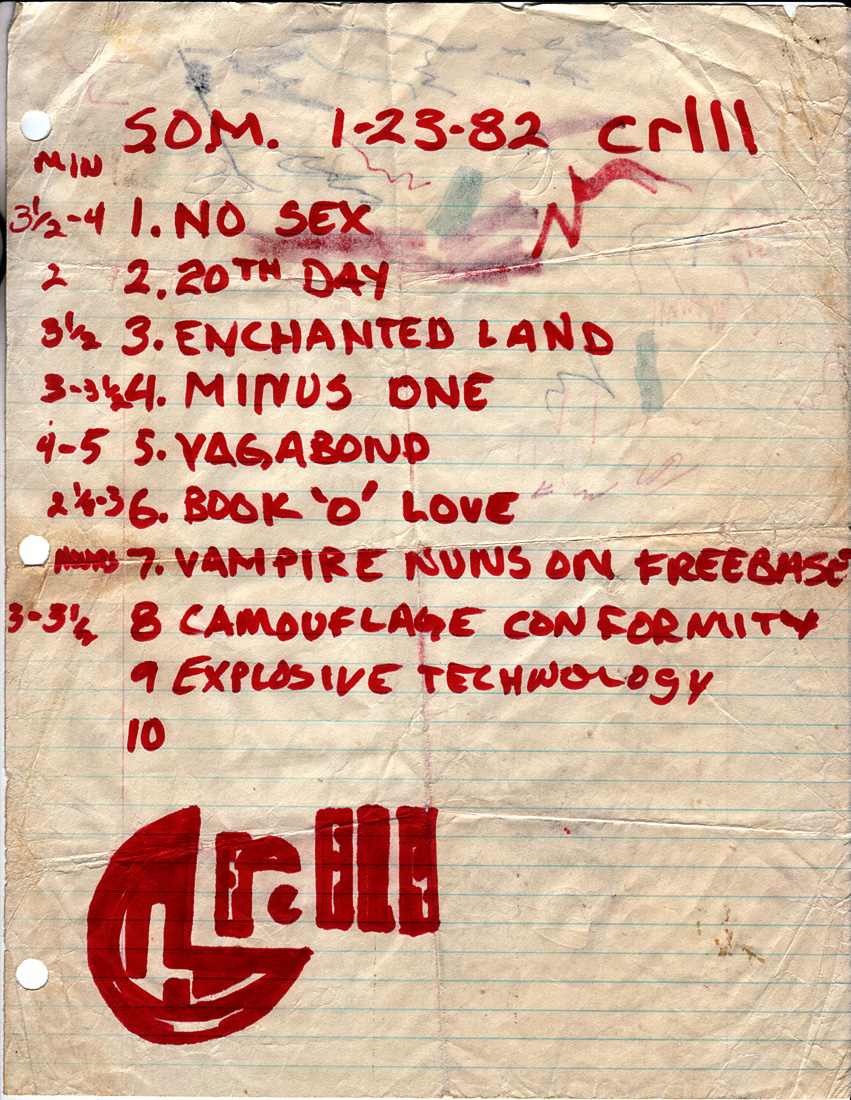 S.O.M. 1-23-82 crIII
MIN
3½-4 1. NO SEX
2 2. 20TH DAY
3½ 3. ENCHANTED LAND
3-3½ 4. MINUS ONE
4-5 5. VAGABOND
2¼-3 6. BOOK 'O' LOVE
7. VAMPIRE NUNS ON FREEBASE
3-3½ 8 CAMOUFLAGE CONFORMITY
9 EXPLOSIVE TECHNOLOGY
10
CrIII